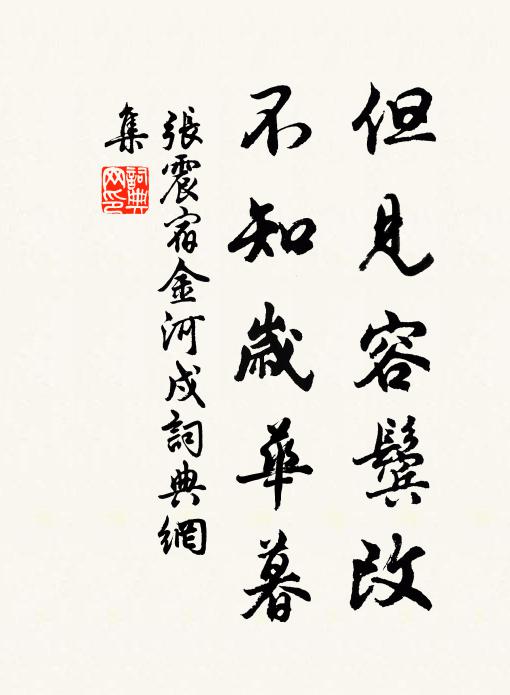 但見容鬢改
不知歲華暮
張震宿金河戍詞典網
集
詞典
网印